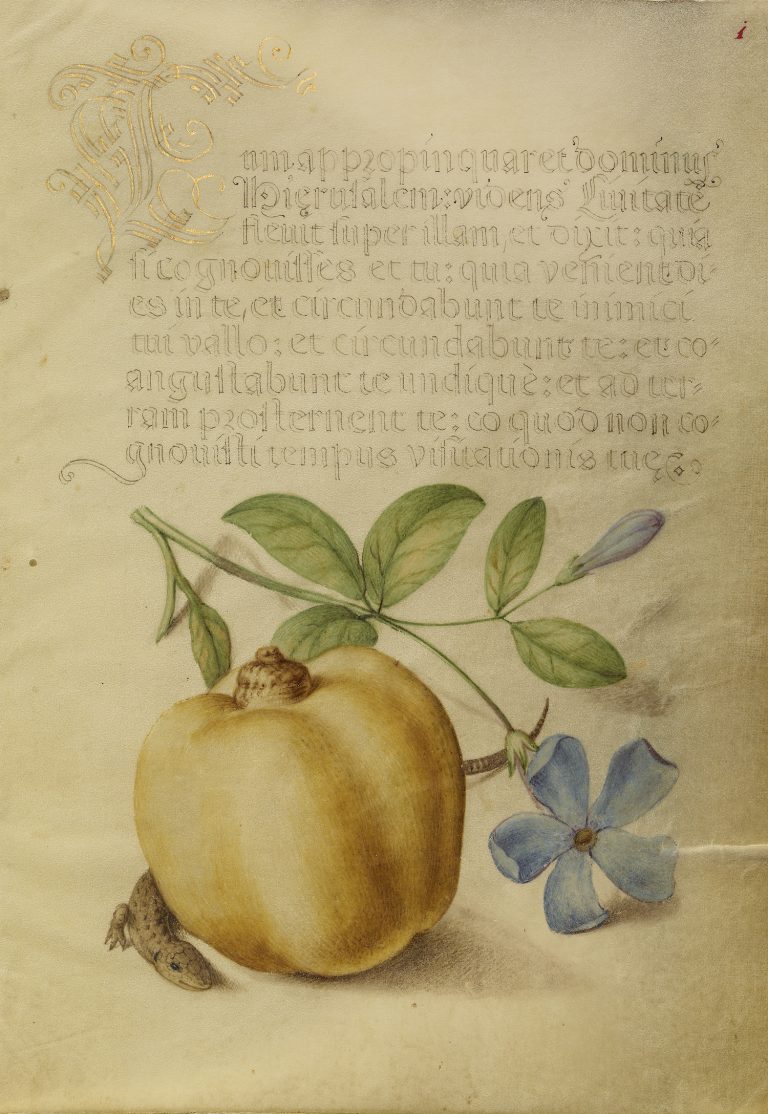 i
Cum appropinquaret dominus
Hierusalem: videns Civitatē
flevit super illam, et dixit: quia
si cognovisses et tu: quia venient di-
es in te, et circundabunt te inimici
tui vallo: et circundabunt te: et co-
angustabunt te undiquè: et ad ter-
ram prosternent te: eo quod non co-
gnovisti tempus visitationis tuę